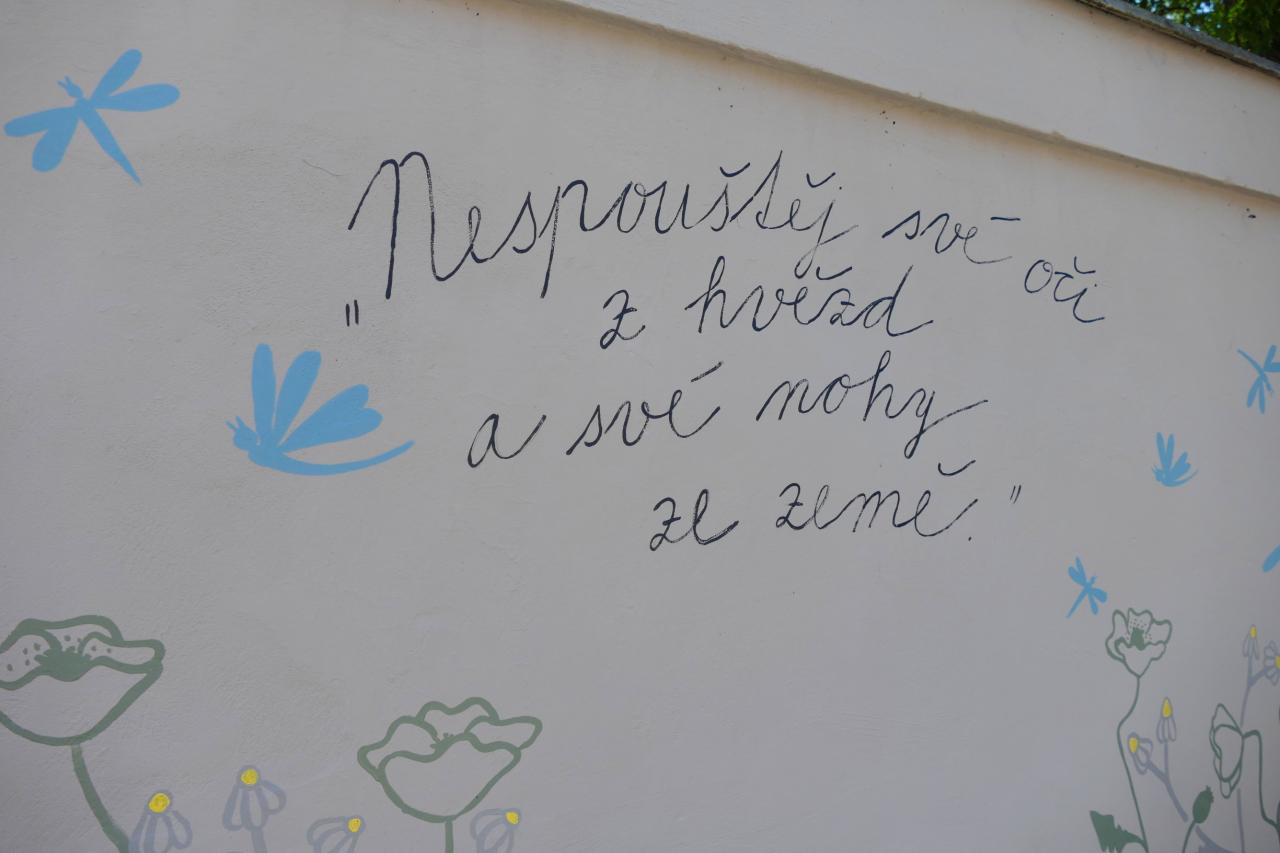 "Nespouštěj své oči
z hvězd
a své nohy
ze země."